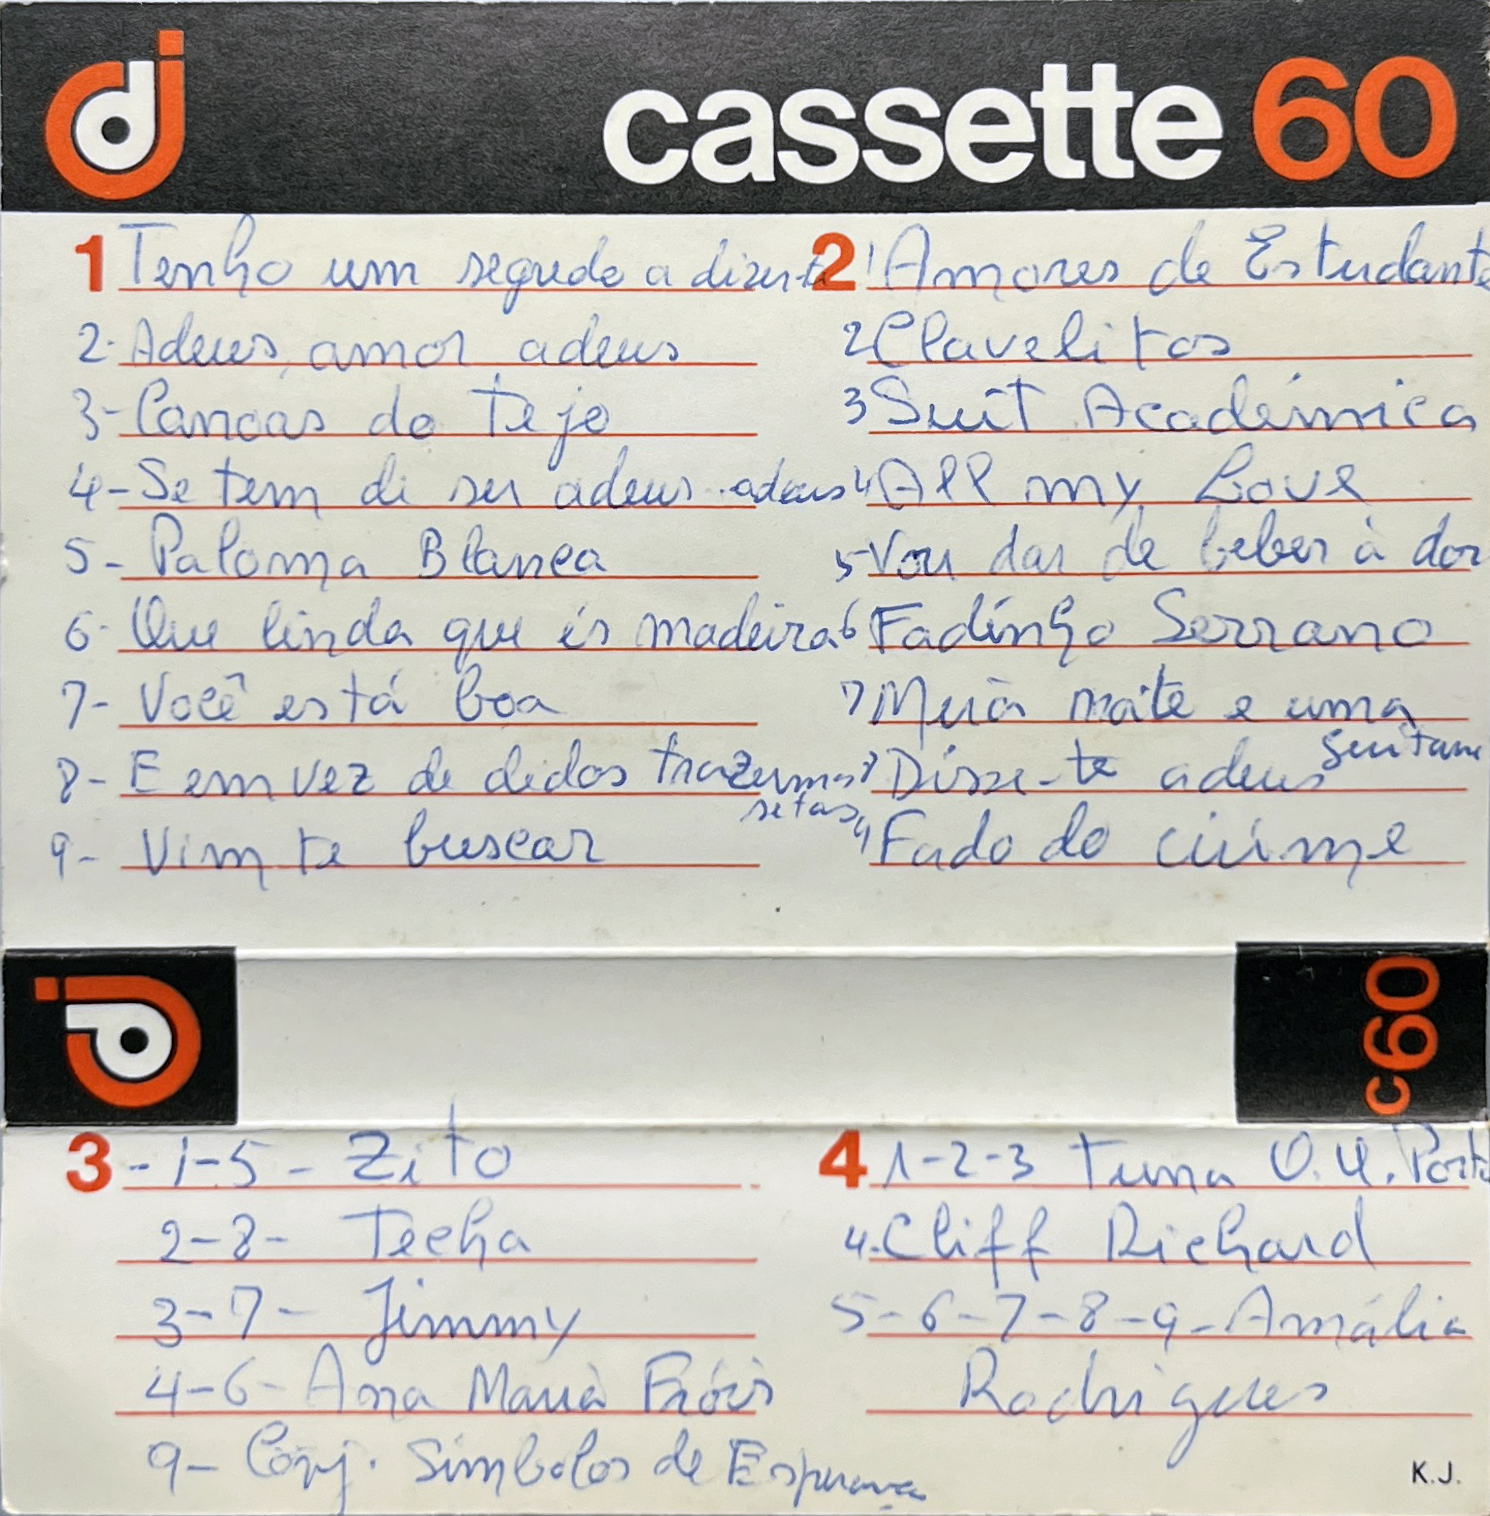 dj cassette 60
1 Tenho um segredo a dizer-te
2- Adeus, amor adeus
3- Canoas do Tejo
4- Se tem di ser adeus adeus
5- Paloma Blanca
6- Que linda que és madeira
7- Você está boa
8- E em vez de dedos trazemos
setas
9- Vim te buscar
2 1 Amores de Estudante
2 Clavelitos
3 Suit Académica
4 All my Love
5- Vou dar de beber à dor
6 Fadinho Serrano
7 Meia noite e uma
guitarra
8 Disse-te adeus
9 Fado do ciúme
dj c60
3 - 1-5 - Zito
2-8- Techa
3-7- Jimmy
4-6- Ana Maria Fróis
9- Conj. Simbolos de Esperança
4 1-2-3 Tuna O.U. Porto
4- Cliff Richard
5-6-7-8-9- Amália
Rodrigues
K.J.